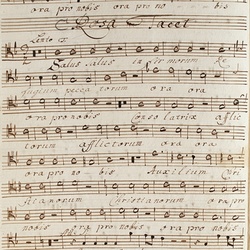 ora pro nobis ora pro no - bis
Rosa Tacet
Lento
Salus salus in firmorum Re
fugium peccatorum ora
ora pro nobis Consolatrix afflic
torum afflictorum ora ora
ora pro no bis Auxilium Chri
stianorum Christianorum ora pro
nobis ora pro nobis ora pro